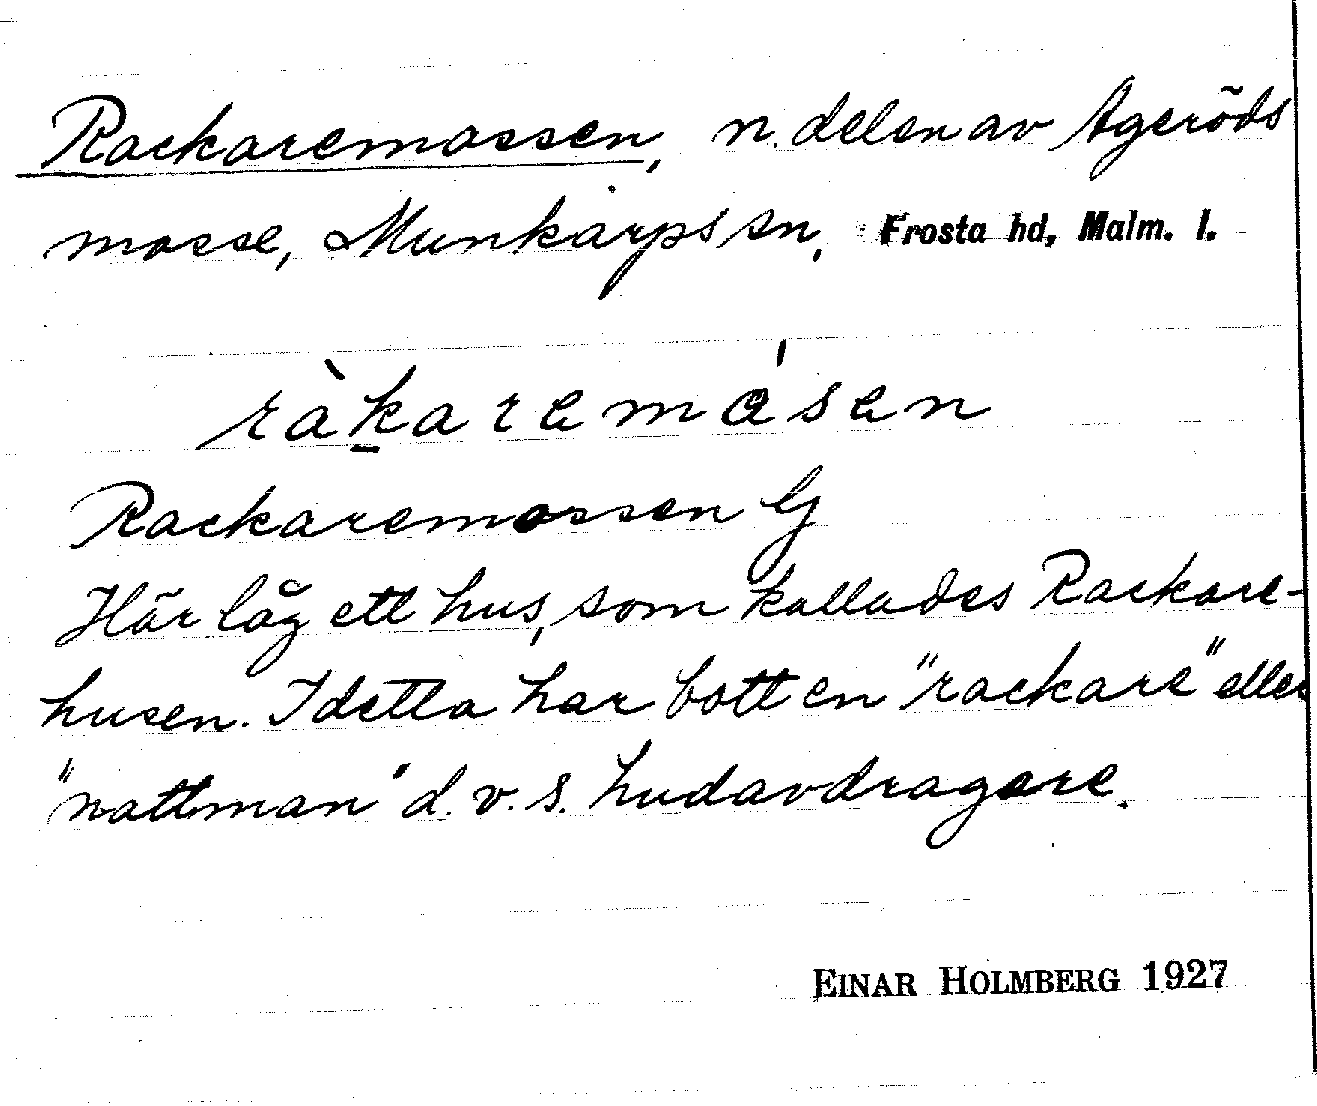 Rackaremossen, n. delen av Ageröds
mosse, Munkarps sn, Frosta hd, Malm. l.
ràkaremósen
Rackaremossen Lj
Här låg ett hus, som kallades Rackare-
husen. I detta har bott en "rackare" eller
"nattman" d.v.s. hudavdragare.
EINAR HOLMBERG 1927